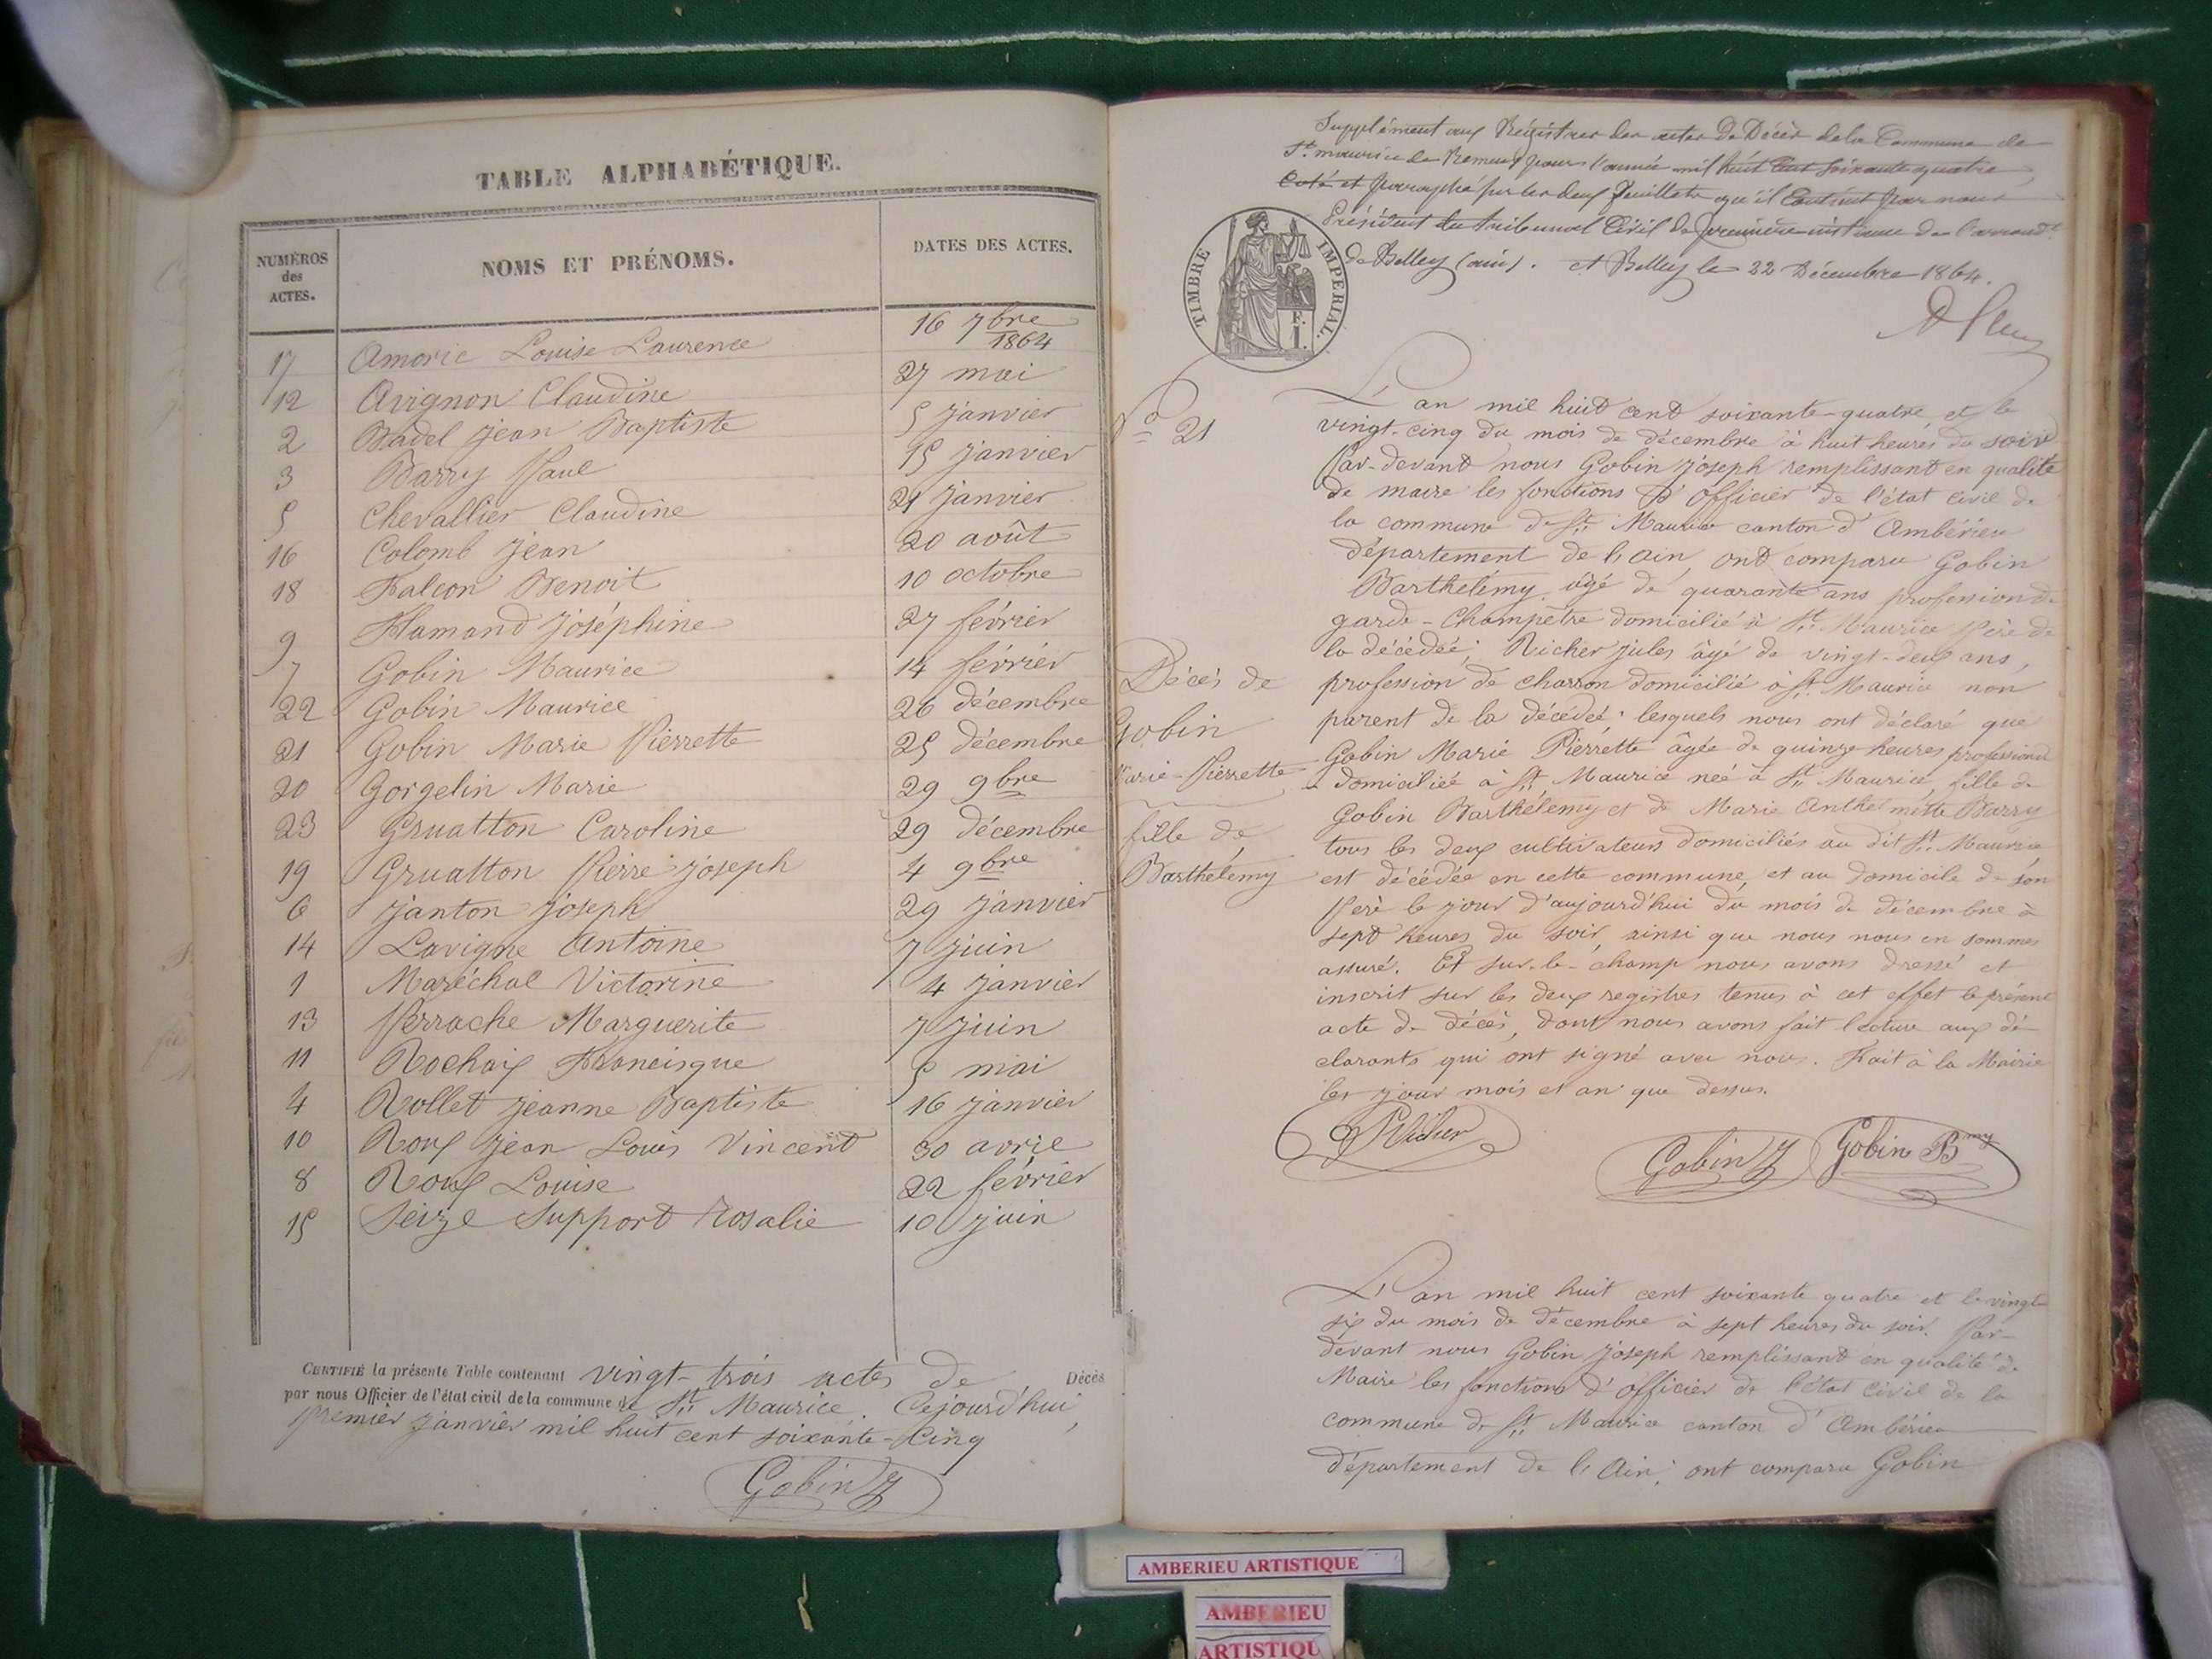 TABLE ALPHABÉTIQUE.
NUMÉROS des ACTES. NOMS ET PRÉNOMS. DATES DES ACTES.
17 Amoric Louise Laurence 16 7bre 1864
12 Avignon Claudine 27 mai
2 Badel Jean Baptiste 5 janvier
3 Barry Paul 15 janvier
5 Chevallier Claudine 21 janvier
16 Colomb Jean 20 août
18 Falcon Benoit 10 octobre
9 Flamand Joséphine 27 février
7 Gobin Maurice 14 février
22 Gobin Maurice 26 décembre
21 Gobin Marie Pierrette 25 décembre
20 Gorgelin Marie 29 9bre
23 Gruatton Caroline 29 décembre
19 Gruatton Pierre Joseph 4 9bre
6 Janton Joseph 29 janvier
14 Lavigne Antoine 7 juin
1 Maréchal Victorine 4 janvier
13 Perrache Marguerite 7 juin
11 Rochaix Francisque 5 mai
4 Rollet Jeanne Baptiste 16 janvier
10 Roux Jean Louis Vincent 30 avril
8 Roux Louise 22 février
15 Seize Support Rosalie 10 juin
CERTIFIÉ la présente Table contenant vingt-trois actes de Décès
par nous Officier de l'état civil de la commune de St. Maurice. Cejourd'hui,
premier janvier mil huit cent soixante-cinq
Gobin J
Supplément aux Régistres des actes de Décès de la Commune de
St. maurice de Remens pour l'année mil huit Cent Soixante quatre,
Coté et paraphé sur les deux feuillets qu'il Contient par nous
Président du tribunal Civil de première instance de l'arrondt.
de Belley (ain). et Belley le 22 Décembre 1864.
TIMBRE IMPERIAL.
No 21
L'an mil huit cent soixante-quatre et le
vingt-cinq du mois de décembre à huit heures du soir
Par-devant nous Gobin Joseph remplissant en qualité
de maire les fonctions d'officier de l'état civil de
la commune de St. Maurice canton d'Ambérieu
département de l'ain, ont comparu Gobin
Barthélemy, âgé de quarante ans profession de
garde-champêtre domicilié à St. Maurice Père de
la décédée; Richer Jules âgé de vingt-deux ans,
profession de charron domicilié à St. Maurice non
parent de la décédée; lesquels nous ont déclaré que
Gobin Marie Pierrette âgée de quinze heures profession
domiciliée à St. Maurice née à St. Maurice, fille de
Gobin Barthélemy et de Marie Anthelmette Barry
tous les deux cultivateurs domiciliés au dit St. Maurice
est décédée en cette commune, et au domicile de son
Père le jour d'aujourd'hui du mois de décembre à
sept heures du soir, ainsi que nous nous en sommes
assuré. Et sur-le-champ nous avons dressé et
inscrit sur les deux registres tenus à cet effet le présent
acte de décès, dont nous avons fait lecture aux dé-
clarants qui ont signé avec nous. Fait à la Mairie
les jour mois et an que dessus.
Décès de
Gobin
Marie-Pierrette
fille de
Barthélemy
Richer
Gobin J
Gobin Bmy
L'an mil huit cent soixante quatre et le vingt-
six du mois de décembre à sept heures du soir. Par-
devant nous Gobin Joseph remplissant en qualité de
Maire les fonctions d'officier de l'état civil de la
commune de St. Maurice canton d'Ambérieu
département de l'Ain; ont comparu Gobin
AMBERIEU ARTISTIQUE
AMBERIEU
ARTISTIQU